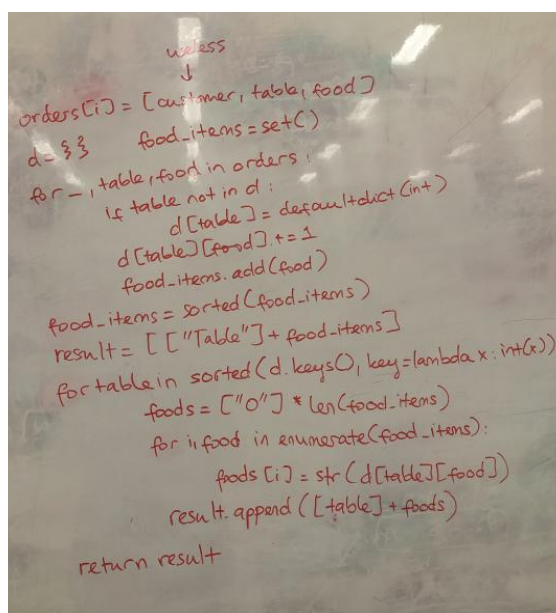 useless
↓
orders[i] = [customer, table, food]
d = {} food_items = set()
for _, table, food in orders:
if table not in d:
d[table] = defaultdict(int)
d[table][food] += 1
food_items.add(food)
food_items = sorted(food_items)
result = [["Table"] + food_items]
for table in sorted(d.keys(), key=lambda x: int(x))
foods = ["0"] * len(food_items)
for i, food in enumerate(food_items):
foods[i] = str(d[table][food])
result.append([table] + foods)
return result